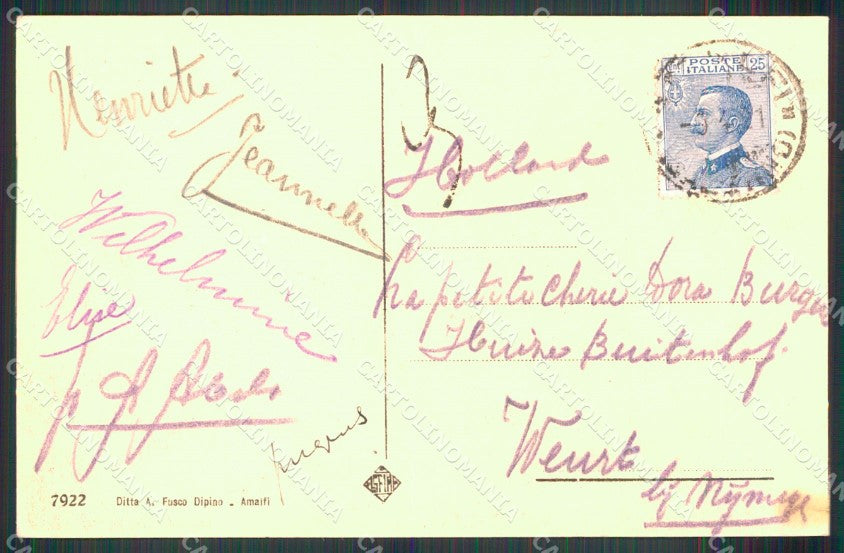 Henriette
Jeannette
Wilhelmine
Elise
7922 Ditta A. Fusco Dipino - Amalfi
POSTE ITALIANE 25
3
Holland
La petite Cherie Dora Burgers
Huize Buitenhof
Weurt
bij Nymege
CARTOLINOMANIA